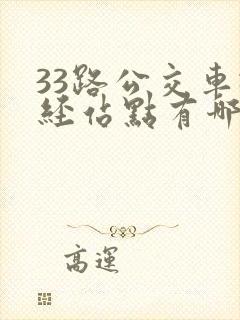 33路公交車
經佔點有哪
高運